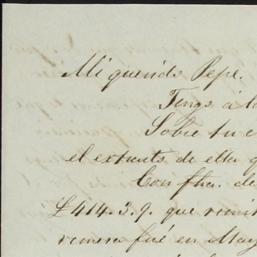 Mi querido Pepe.
Tengo á la
Sobre tu e
el extracto de ella q
Con fha. de
£414.3.9. que remit
remesa fué en May